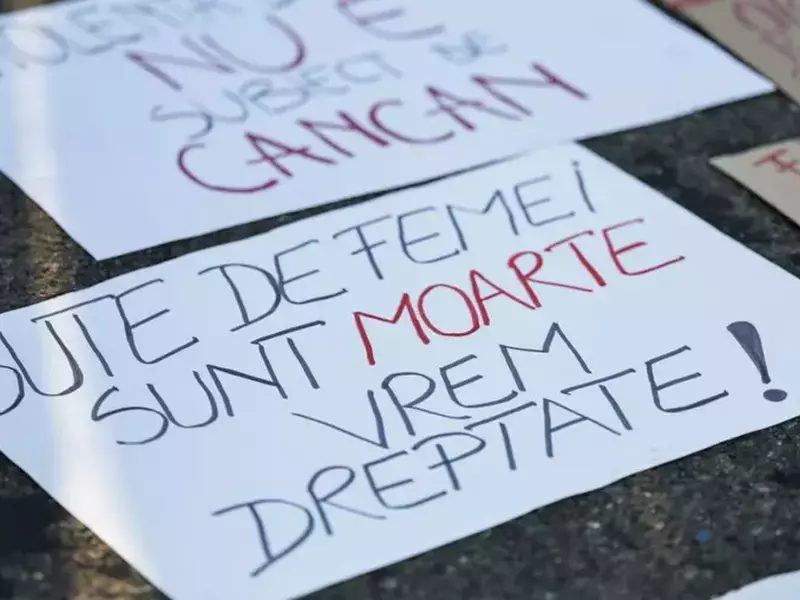 NU E
SUBIECT DE
CANCAN
SUTE DE FEMEI
SUNT MOARTE
VREM
DREPTATE!